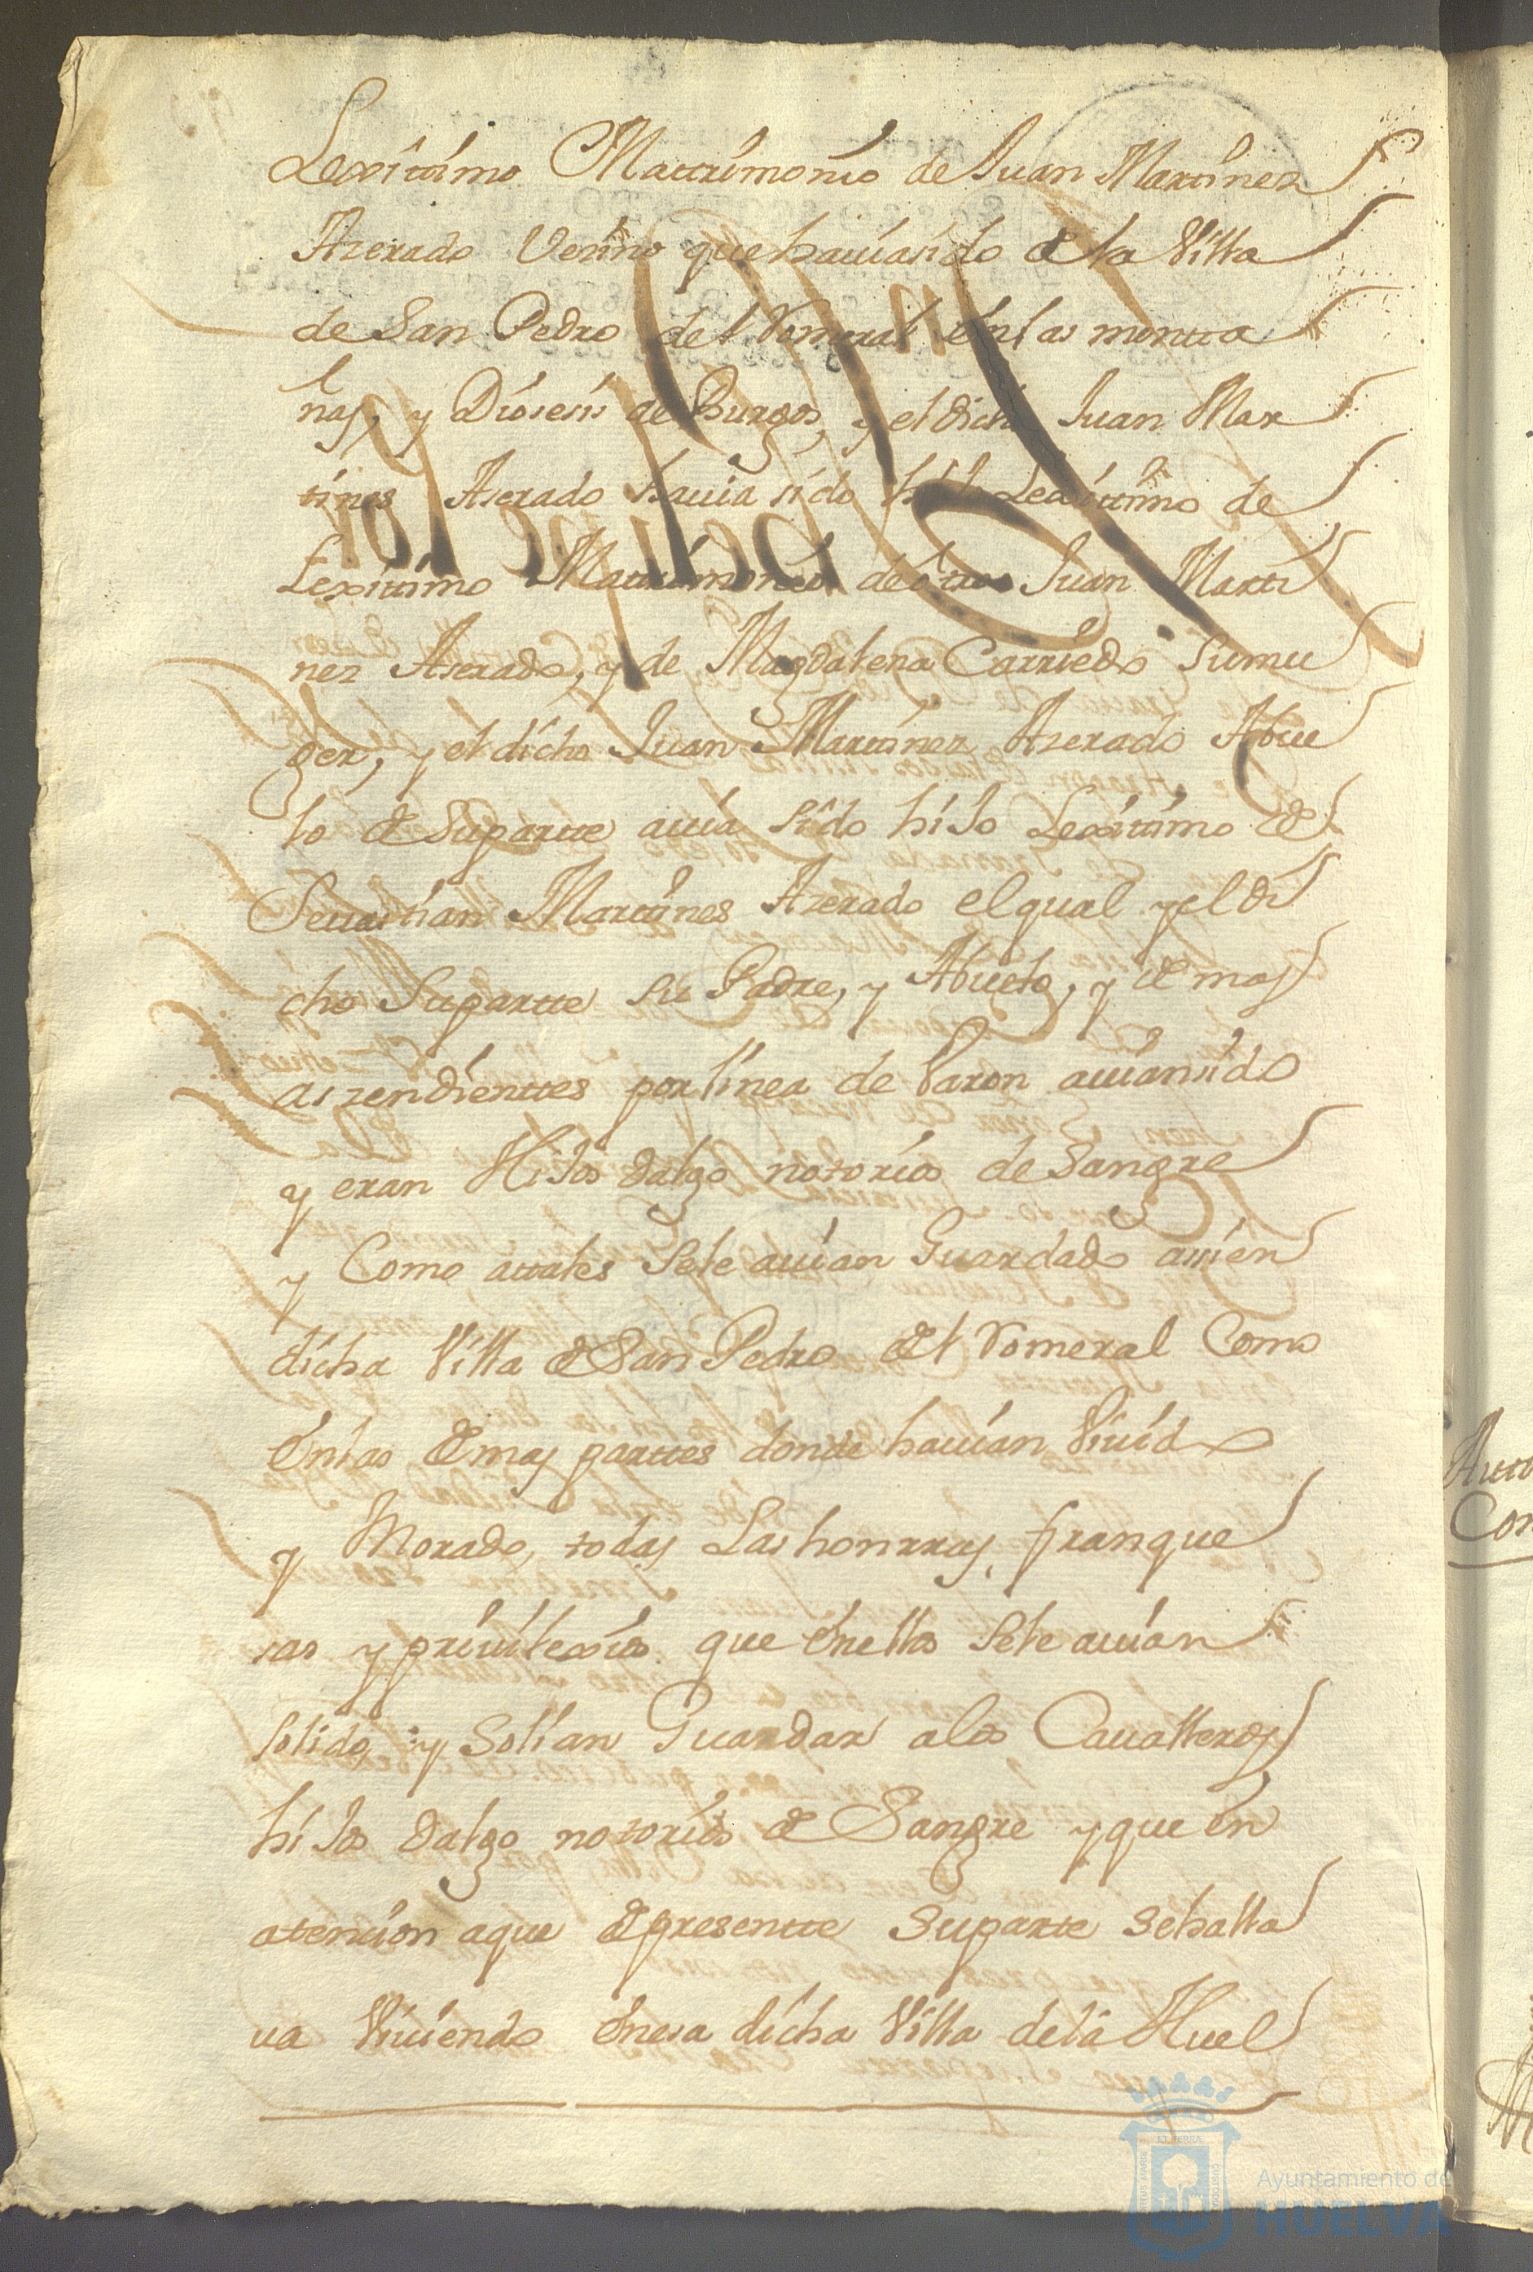 Lexittimo Mattrimonio de Juan Martinez
Azerado Vezino que hauia sido de la Villa
de San Pedro del Romeral en las montta
ñas, y Diosesis de Burgos, y el dicho Juan Mar
tines Aserado hauia sido hijo Lexittimo de
Lexittimo Mattrimonio de otro Juan Marti
nez Aserado, y de Magdalena Carriedo Su mu
ger, y el dicho Juan Martinez Azerado Abue
lo de Su partte auia Sido hiJo Lexittimo de
Seuastian Martines Azerado el qual y el di
cho Su partte Su Padre, y Abuelo, y demas
aszendienttes por linea de Varon auian sido
y eran HiJos dalgo notorios de Sangre
y Como attales Se le auian Guardado assi en
dicha Villa de San Pedro del Romeral Como
en las demas parttes donde hauian Viuido
y Morado, todas Las honrras, franque
sas y priuilexios que en ellas Se le auian
Solido y Solian Guardar a los Caualleros
hiJos dalgo notorios de Sangre y que en
atencion a que de presentte Su parte Se halla
ua Viuiendo en esa dicha Villa de la Huel
Ayuntamiento de
HUELVA